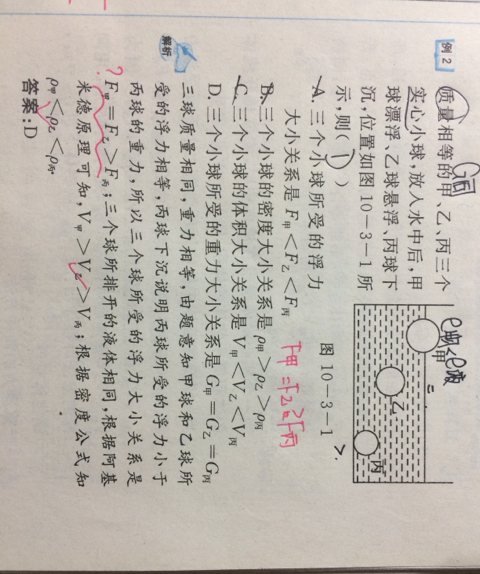 例2
质量相等的甲、乙、丙三个
实心小球,放入水中后,甲
球漂浮、乙球悬浮、丙球下
沉,位置如图10-3-1所
示,则( D )
A. 三个小球所受的浮力
大小关系是F甲<F乙<F丙
B. 三个小球的密度大小关系是ρ甲>ρ乙>ρ丙
C. 三个小球的体积大小关系是V甲<V乙<V丙
D. 三个小球所受的重力大小关系是G甲=G乙=G丙
G同
ρ甲<ρ液
甲
乙
丙
图10-3-1
F甲=F乙>F丙
>
解析
三球质量相同,重力相等,由题意知甲球和乙球所
受的浮力相等,丙球下沉说明丙球所受的浮力小于
丙球的重力,所以三个球所受的浮力大小关系是
F甲=F乙>F丙;三个球所排开的液体相同,根据阿基
米德原理可知,V甲>V乙>V丙;根据密度公式知
ρ甲<ρ乙<ρ丙.
?
答案:D